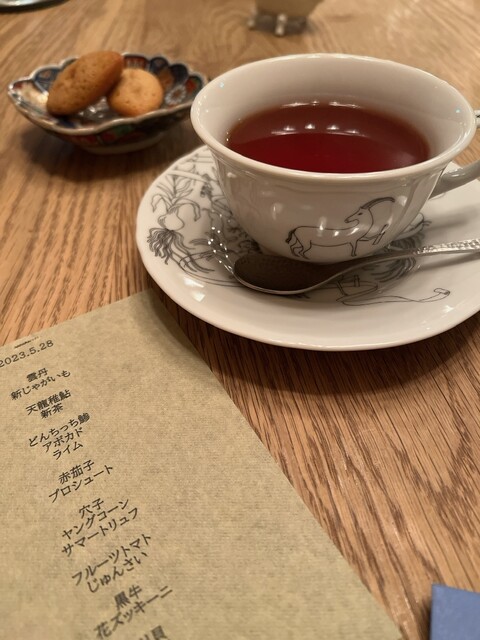 2023.5.28
雲丹
新じゃがいも
天龍稚鮎
新茶
どんちっち鯵
アボカド
ライム
赤茄子
プロシュート
穴子
ヤングコーン
サマートリュフ
フルーツトマト
じゅんさい
黒牛
花ズッキーニ